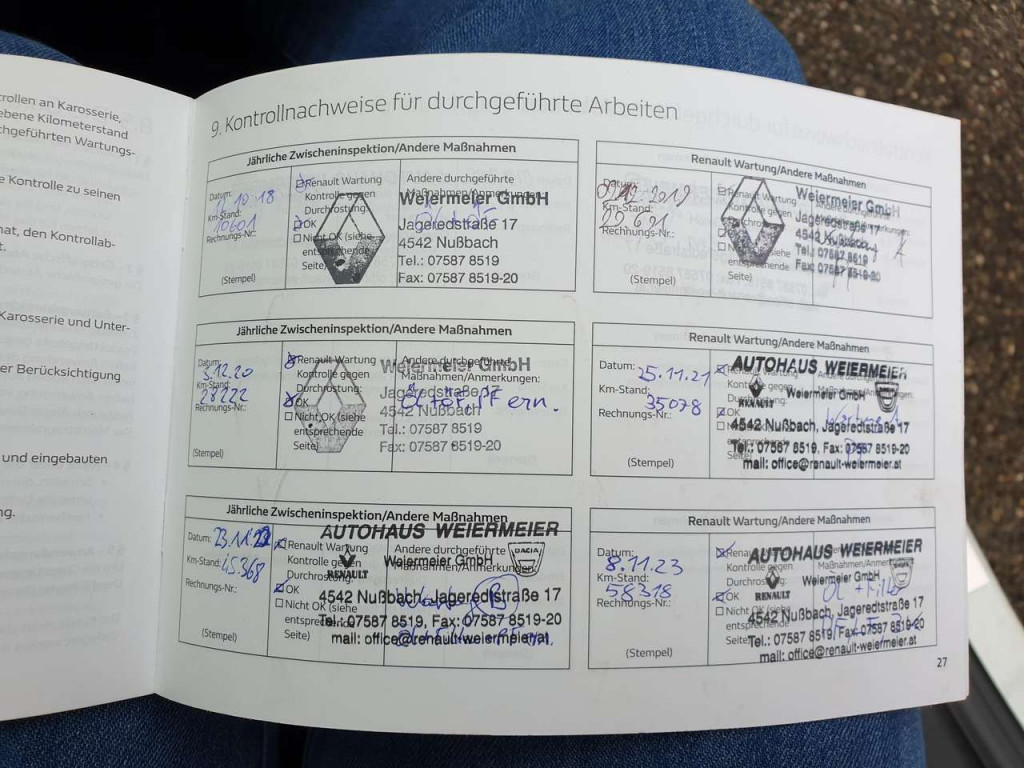 rollen an Karosserie,
ebene Kilometerstand
chgeführten Wartungs-
e Kontrolle zu seinen
nat, den Kontrollab-
t.
Karosserie und Unter-
er Berücksichtigung
und eingebauten
ng.
9. Kontrollnachweise für durchgeführte Arbeiten
Jährliche Zwischeninspektion/Andere Maßnahmen
Datum:
10 18
Km-Stand:
10601
Rechnungs-Nr.:
(Stempel)
Renault Wartung
Kontrolle gegen
Durchrostung:
OK
Nicht OK (siehe
entsprechende
Seite)
Andere durchgeführte
Maßnahmen/Anmerkungen:
Weiermeier GmbH
Jageredtstraße 17
4542 Nußbach
Tel.: 07587 8519
Fax: 07587 8519-20
Renault Wartung/Andere Maßnahmen
Km-Stand:
Rechnungs-Nr.:
(Stempel)
Weiermeier GmbH
Jageredtstraße 17
4542 Nußbach
Tel.: 07587 8519
Fax: 07587 8519-20
Jährliche Zwischeninspektion/Andere Maßnahmen
Datum:
3.12.20
Km-Stand:
28222
Rechnungs-Nr.:
(Stempel)
Renault Wartung
Kontrolle gegen
Durchrostung:
OK
Nicht OK (siehe
entsprechende
Seite)
Andere durchgeführte
Maßnahmen/Anmerkungen:
Weiermeier GmbH
Jageredtstraße 17
4542 Nußbach
Tel.: 07587 8519
Fax: 07587 8519-20
Renault Wartung/Andere Maßnahmen
Datum:
25.11.21
Km-Stand:
35078
Rechnungs-Nr.:
(Stempel)
AUTOHAUS WEIERMEIER
RENAULT
Weiermeier GmbH
4542 Nußbach, Jageredtstraße 17
Tel.: 07587 8519, Fax: 07587 8519-20
mail: office@renault-weiermeier.at
Jährliche Zwischeninspektion/Andere Maßnahmen
Datum:
23.11.22
Km-Stand:
45368
Rechnungs-Nr.:
(Stempel)
Renault Wartung
Kontrolle gegen
Durchrostung:
OK
Nicht OK (siehe
entsprechende
Seite)
Andere durchgeführte
Maßnahmen/Anmerkungen:
AUTOHAUS WEIERMEIER
RENAULT
Weiermeier GmbH
DACIA
4542 Nußbach, Jageredtstraße 17
Tel.: 07587 8519, Fax: 07587 8519-20
mail: office@renault-weiermeier.at
Renault Wartung/Andere Maßnahmen
Datum:
8.11.23
Km-Stand:
58318
Rechnungs-Nr.:
(Stempel)
Durchrostung:
OK
Nicht OK (siehe
entsprechende
Seite)
AUTOHAUS WEIERMEIER
RENAULT
Weiermeier GmbH
4542 Nußbach, Jageredtstraße 17
Tel.: 07587 8519, Fax: 07587 8519-20
mail: office@renault-weiermeier.at
27